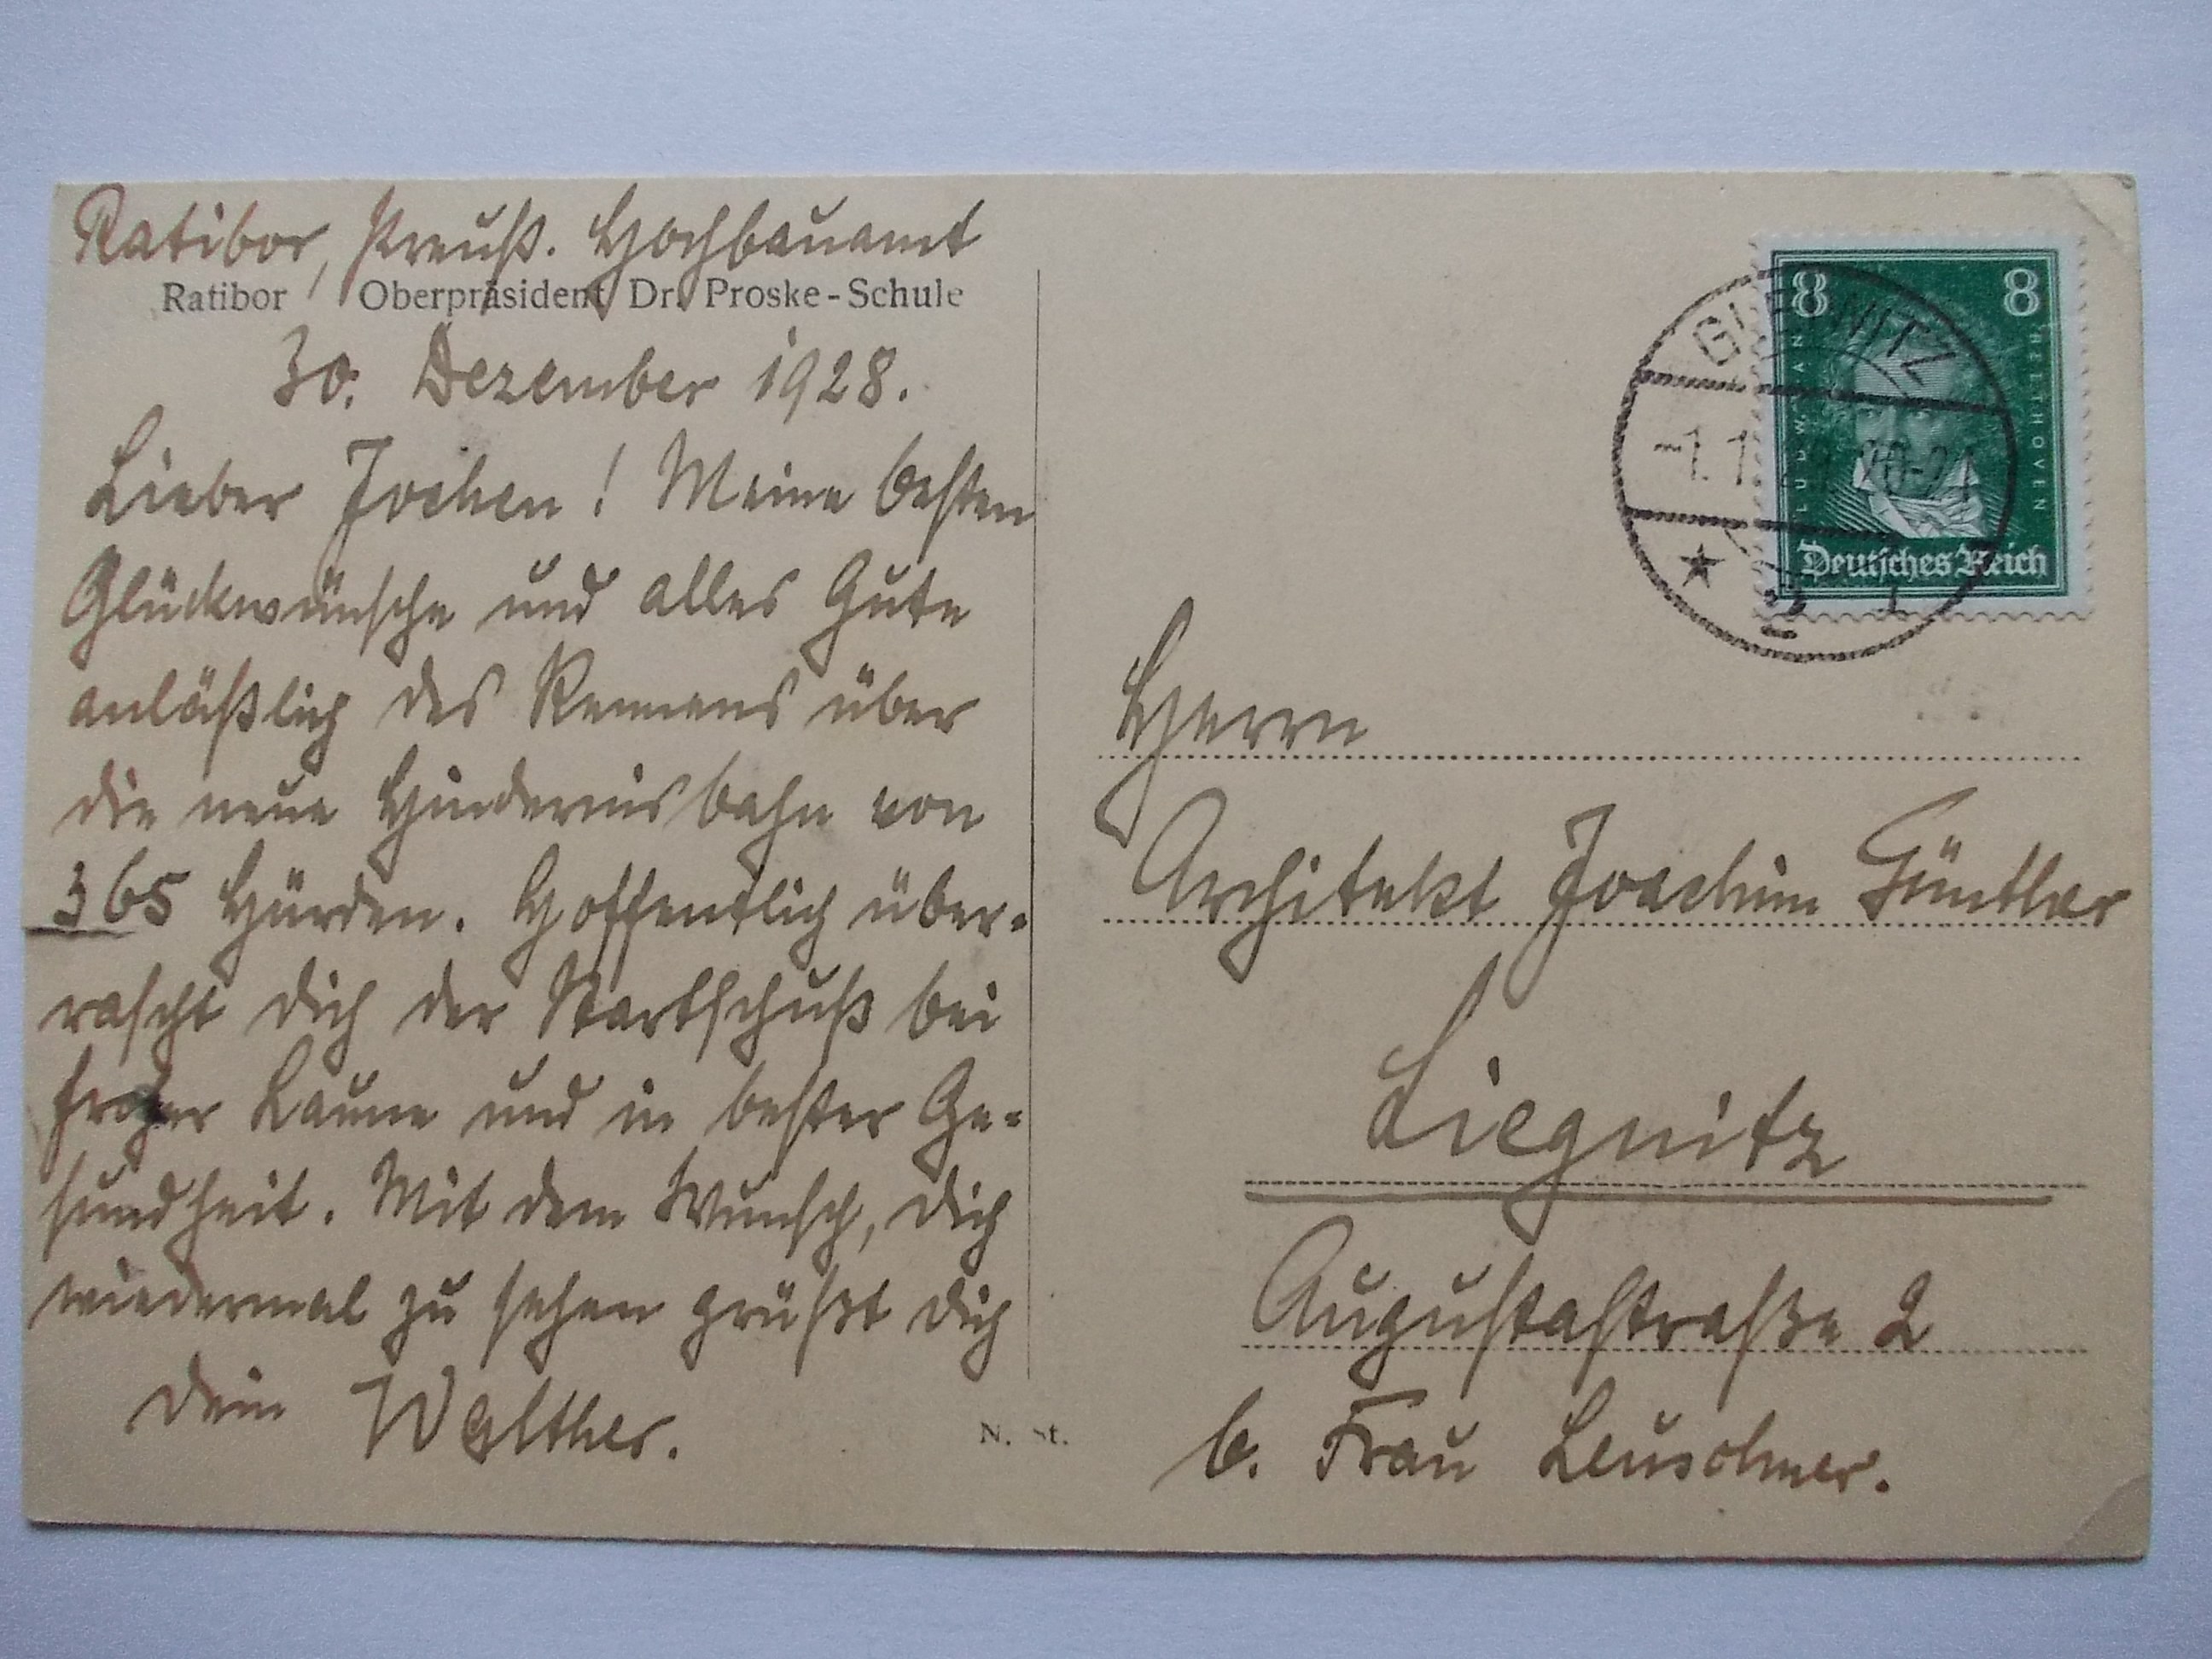 Ratibor, Preuß. Hochbauamt
Ratibor Oberpräsident Dr. Proske-Schule
30. Dezember 1928.
Lieber Jochen! Meine besten
Glückwünsche und alles Gute
anläßlich des Rennens über
die neue Hindernisbahn von
365 Hürden. Hoffentlich über-
rascht Dich der Startschuß bei
froher Laune und in bester Ge-
sundheit. Mit dem Wunsch, Dich
wiedermal zu sehen grüßt Dich
Dein Walther.
N. St.
8 8
LUDWIG VAN BEETHOVEN
Deutsches Reich
GLEIWITZ
-1.1. 20-21
Herrn
Architekt Joachim Günther
Liegnitz
Augustastraße 2
b. Frau Leuschner.